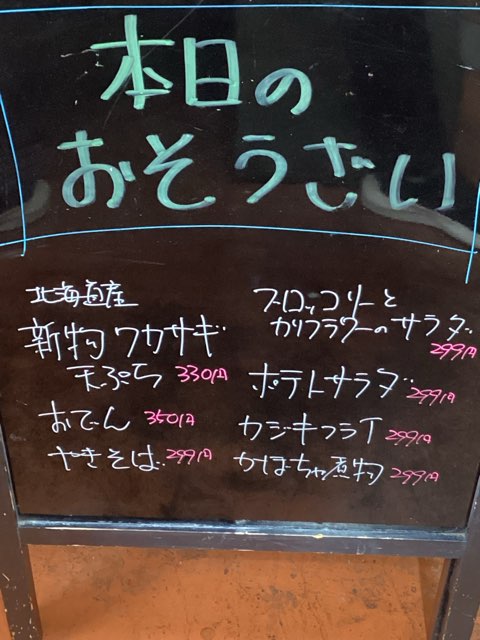 本日の
おそうざい
北海道産
新物ワカサギ
天ぷら 330円
おでん 350円
やきそば 299円
ブロッコリーと
カリフラワーのサラダ
299円
ポテトサラダ 299円
カジキフライ 299円
かぼちゃ煮物 299円